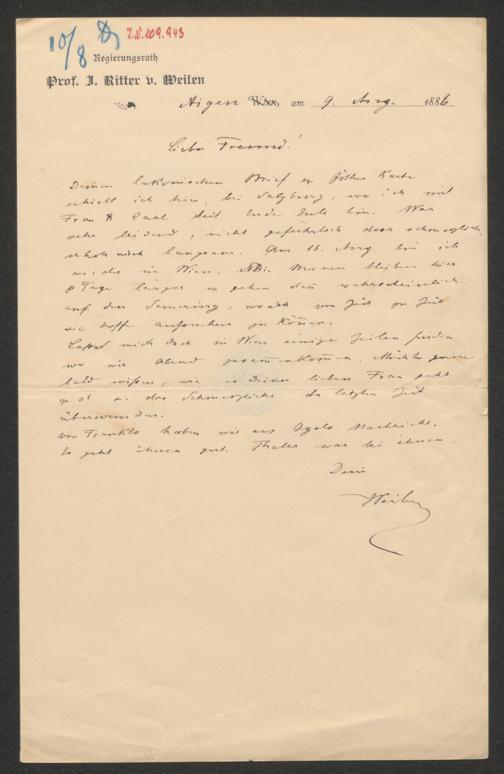 10/8
I.N. 109.943
Regierungsrath
Prof. J. Ritter v. Weilen
Aigen Wien, am 9. Aug. 1886
Lieber Freund!
Deinen lakonischen Brief Karte
erhielt ich hier, bei Salzburg, wo ich mit
Frau Ende bin. War
sehr leidend, nicht gefährlich doch schmerzlich,
erhole mich langsam. Am 18. Aug. bin ich
wieder in Wien. Die Meinen bleiben hier
8 Tage länger gehen dann wahrscheinlich
auf den Semering, von Zeit zu Zeit
sie hoffe aufsuchen zu können.
Lasse mich doch in Wien einige Zeilen finden
wo wir Abend zusammenkommen. Möchte gern
bald wissen, wie es Deiner lieben Frau geht
ob sie das Schmerzliche der letzten Zeit
überwunden.
von Frankls haben wir aus Igels Nachricht.
Es geht ihnen gut. Thaler war bei ihnen.
Dein
Weilen